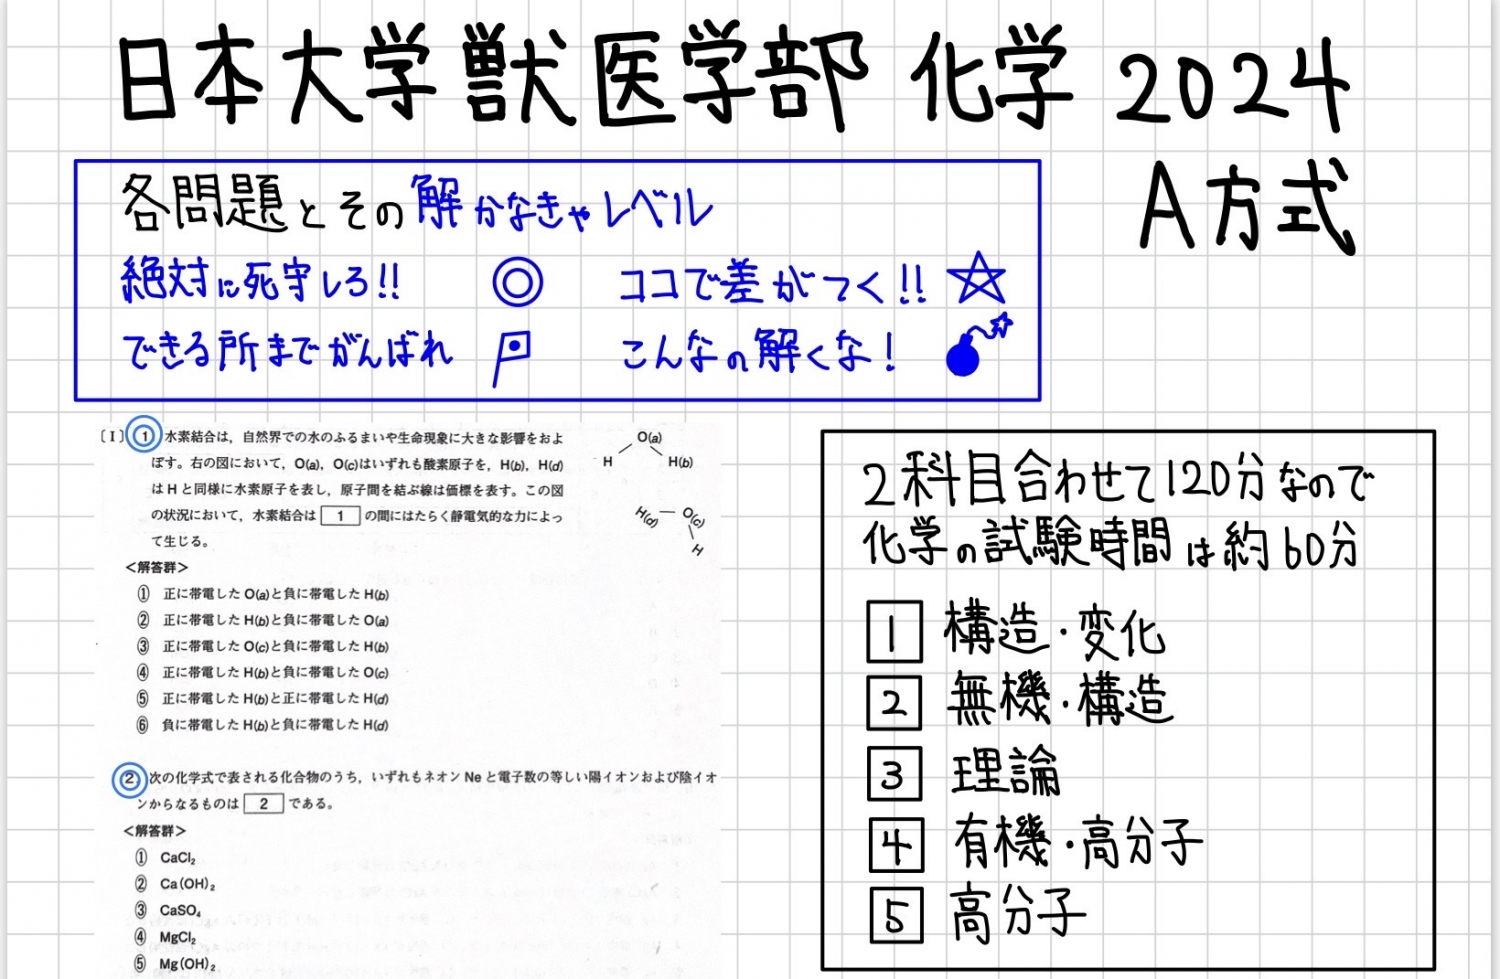 日本大学獣医学部 化学 2024
A方式
各問題とその解かなきゃレベル
絶対に死守しろ!! ◎ ココで差がつく!! ☆
できる所までがんばれ こんなの解くな!
〔I〕 1 水素結合は，自然界での水のふるまいや生命現象に大きな影響をおよ
ぼす。右の図において，O(a)，O(c)はいずれも酸素原子を，H(b)，H(d)
はHと同様に水素原子を表し，原子間を結ぶ線は価標を表す。この図
の状況において，水素結合は 1 の間にはたらく静電気的な力によっ
て生じる。
O(a)
H H(b)
H(d) O(c)
H
<解答群>
① 正に帯電したO(a)と負に帯電したH(b)
② 正に帯電したH(b)と負に帯電したO(a)
③ 正に帯電したO(c)と負に帯電したH(b)
④ 正に帯電したH(b)と負に帯電したO(c)
⑤ 正に帯電したH(b)と正に帯電したH(d)
⑥ 負に帯電したH(b)と負に帯電したH(d)
2 次の化学式で表される化合物のうち，いずれもネオンNeと電子数の等しい陽イオンおよび陰イオ
ンからなるものは 2 である。
<解答群>
① CaCl₂
② Ca(OH)₂
③ CaSO₄
④ MgCl₂
⑤ Mg(OH)₂
2科目合わせて120分なので
化学の試験時間は約60分
1 構造・変化
2 無機・構造
3 理論
4 有機・高分子
5 高分子